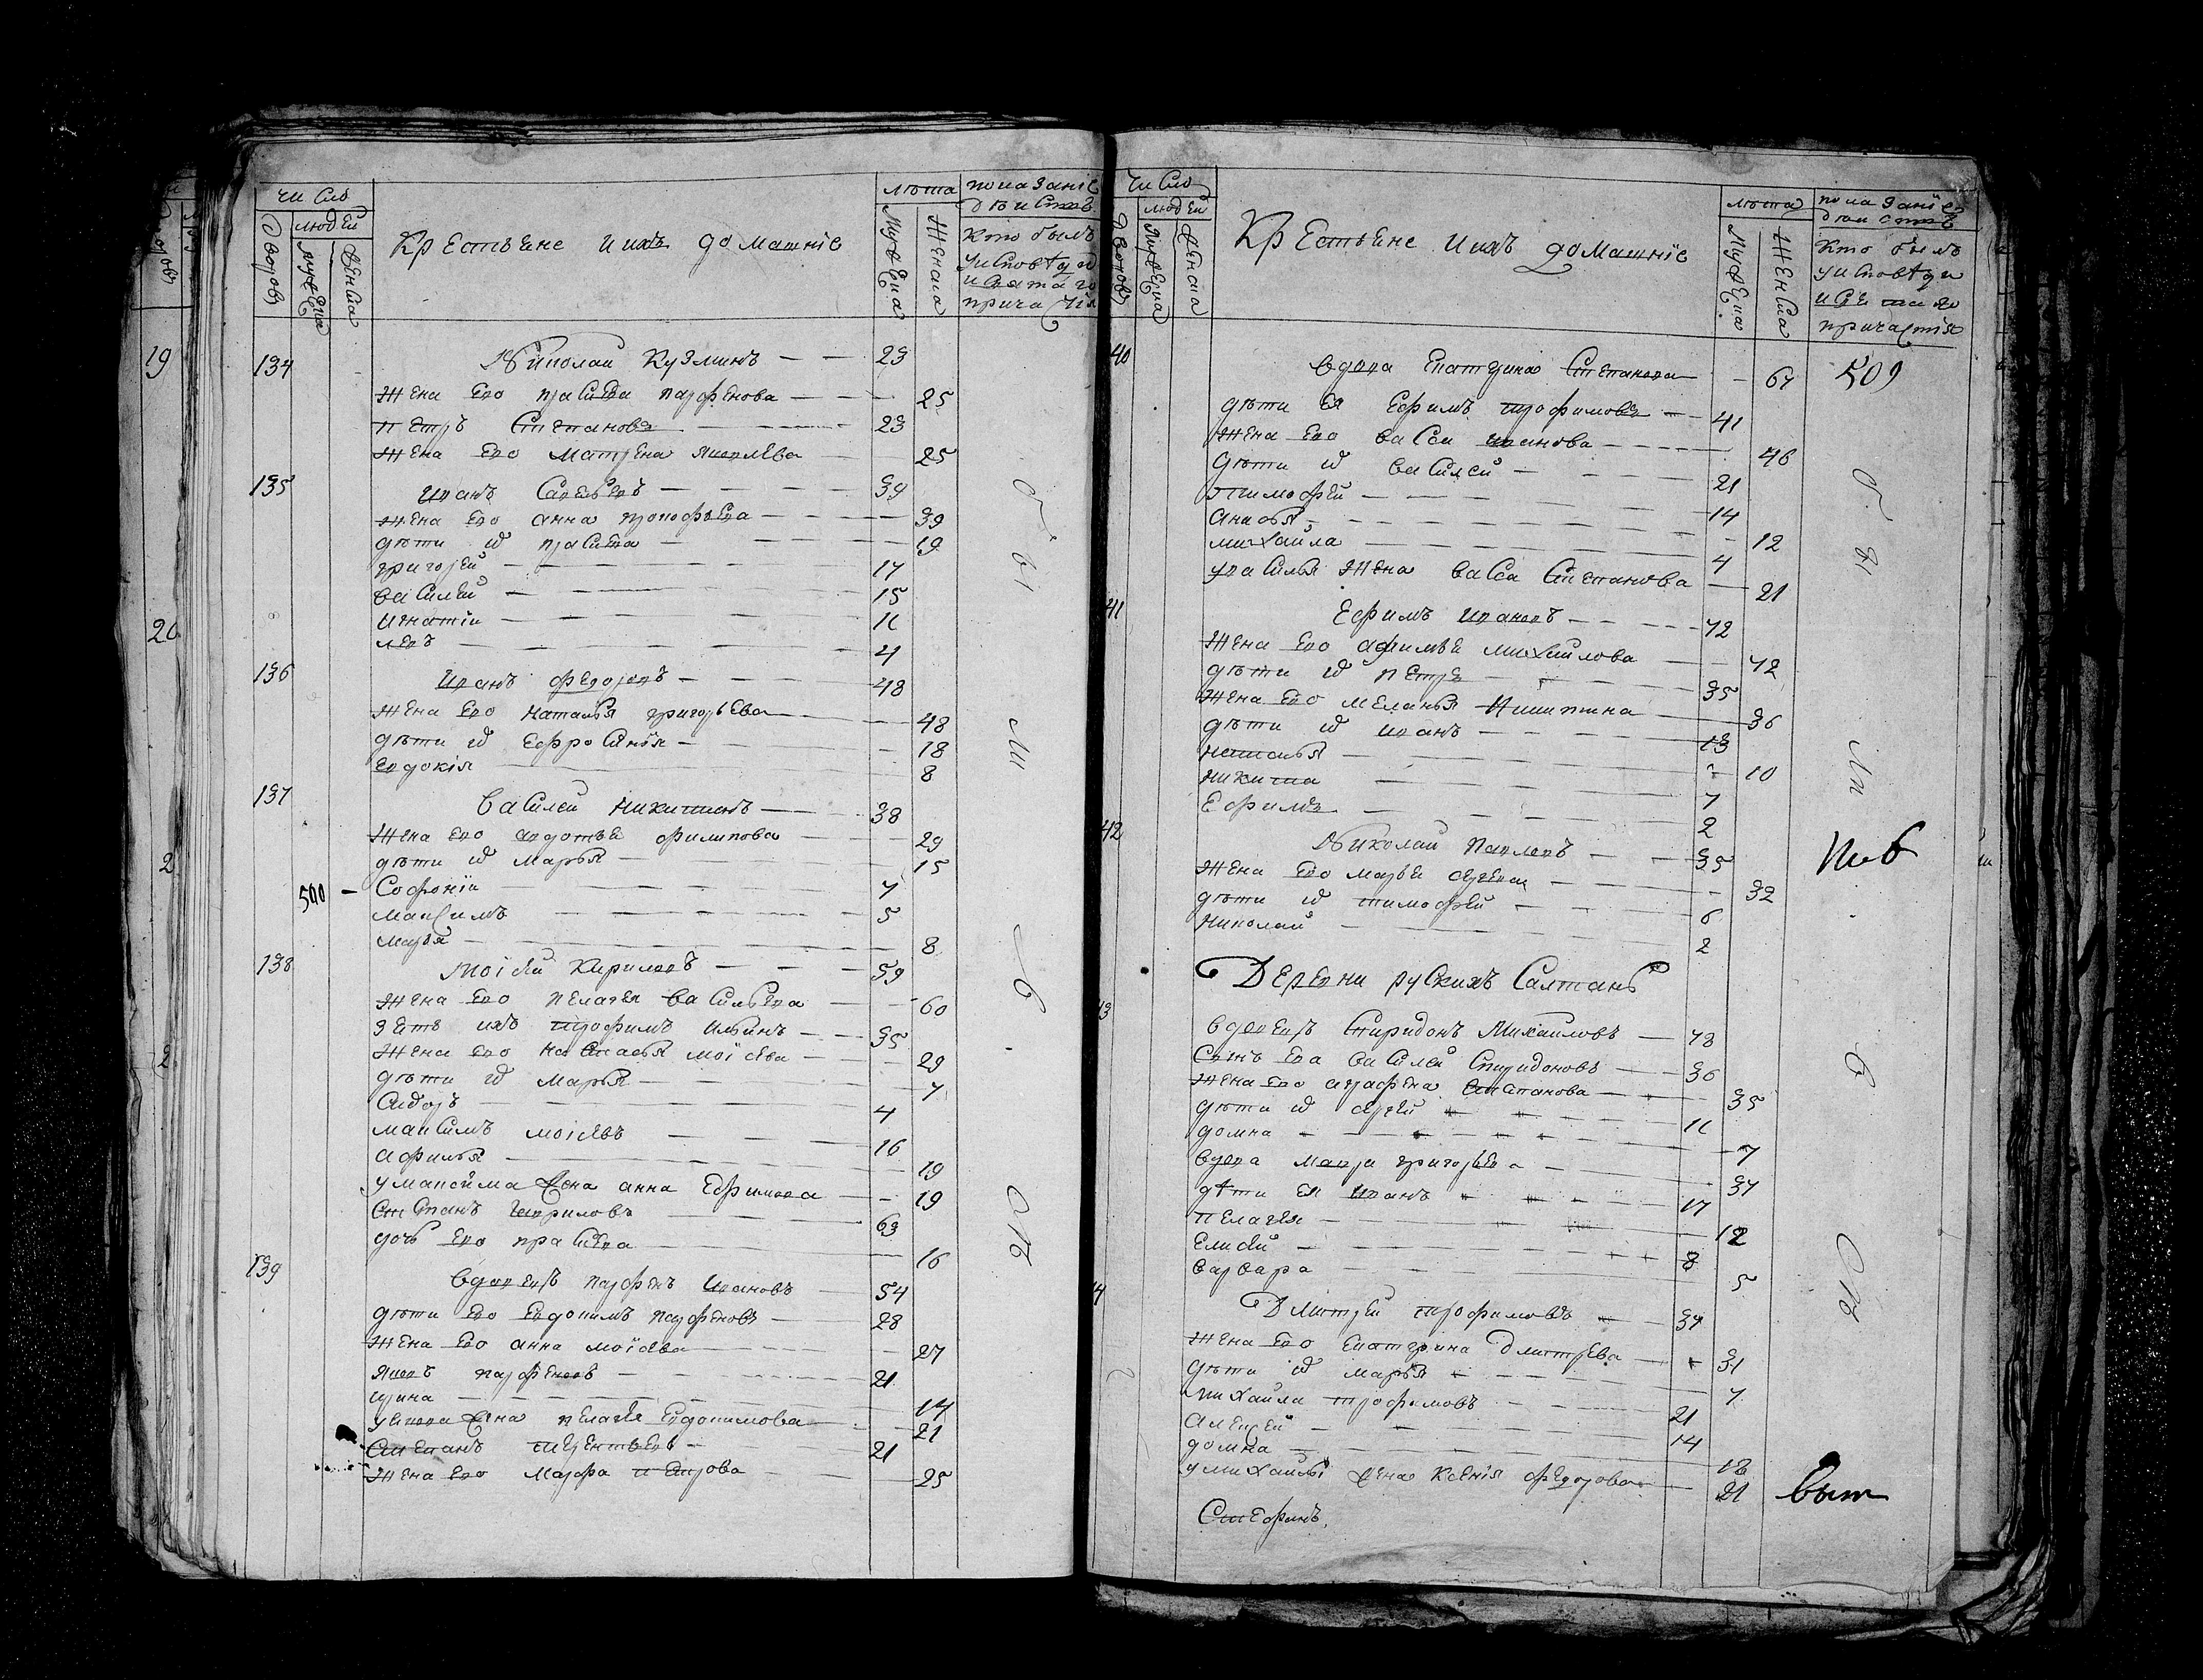 число
людей
дворов
мужеска
женска
Крестьене и ихъ домашнїе
лѣта
мужеска
женска
показанїе
дѣиствъ
кто былъ
у исповѣди
и святаго
причастія
134 Николаи Кузминъ — — 23
Жена Ево прасковя парфенова — — — 25
петръ Степановъ — — — 23
Жена Ево Матрена яковлѣва — 25
135 иванъ Савельевъ — — — 39
Жена Ево анна прокофьева — — — 39
дѣти их прасковя — — — 19
григорѣй — — — 17
василѣй — — — 15
игнатїи — — — 11
левъ — — — 4
136 иванъ федоровъ — — — 48
Жена Ево наталья григорьева — — 48
дѣти их Ефросинїя — — — 18
Евдокія — — 8
137 василеи никитинъ — — 38
Жена Ево авдотьи филипова — — 29
дѣти их марья — — 15
500 — Софонїи — — 7
максимъ — — — 5
марья — — — 8
138 моісѣй кириловъ — — — 59
Жена Ево пелагея васильева — — 60
зять ихъ трофимъ ильинъ — — 35
Жена Ево настасья моїсѣва — — 29
дѣти их марья — — — 7
сидоръ — — 4
максимъ моісѣвъ — — — 16
афимья — — — 19
у максима жена анна Ефимова — — 19
степанъ гавриловъ — — 63
дочь Ево прасковя — — 16
139 вдовецъ парфенъ ивановъ — 54
дѣти Ево Евдокимъ парфеновъ — 28
Жена Ево анна моїсѣва — — — 27
яковъ парфеновъ — — — 21
ирина — — — 14
у якова жена пелагея Евдокимова — — 21
степанъ терентьевъ — 21
Жена Ево марфа петрова — — 25
были
число
людей
дворовъ
мужеска
женска
Крестьене и ихъ домашнїе
лѣта
мужеска
женска
показанїе
дѣиствъ
кто былъ
у исповѣди
и святаго
причастія
40 вдова Екатерина Степанова — 67 509
дѣти ея Ефимъ трофимовъ — — 41
Жена Ево васса иванова — — — 46
дѣти их василей — — — 21
тимофей — — — 14
анисья — — — 12
михаила — — — 4
у василья жена васса Степанова — 21
41 Ефимъ ивановъ — — — 72
Жена Ево афимьи михаилова — — 72
дѣти их петръ — — — 35
Жена Ево меланья никитина — 36
дѣти их иванъ — — — 13
наталья — — — 10
никита — — — 7
Ефимъ — — — 2
42 Николаи павловъ — — — 35
Жена Ево марьи сергеева — — — 32
дѣти их тимофей — — — 6
николай — — — 2
Деревни рускихъ Салтанъ
43 вдовецъ Спиридонъ Михаиловъ — 78
Сынъ Ева василей Спиридоновъ — — 36
Жена Ево аграфена Степанова — — — 35
дѣти их сергей — — — 11
домна — — — 7
вдова мавра григорьева — — 37
дѣти ея иванъ — — — 17
пелагея — — — 12
Елисѣй — — — 8
варвара — — — 5
Дмитрей трофимовъ — — 37
Жена Ево Екатерина дмитрева — — 31
дѣти их марья — — — 7
михаила трофимовъ — — — 21
алексей — — — 14
домна — — — 18
у михаилы жена ксенія федорова — 21
были